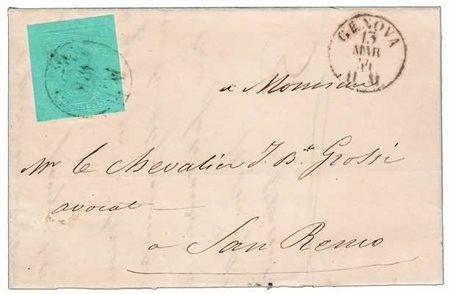 GENOVA
13
MAR
a Monsieur
Mr le Chevalier J. Bt. Grossi
avocat
a San Remo